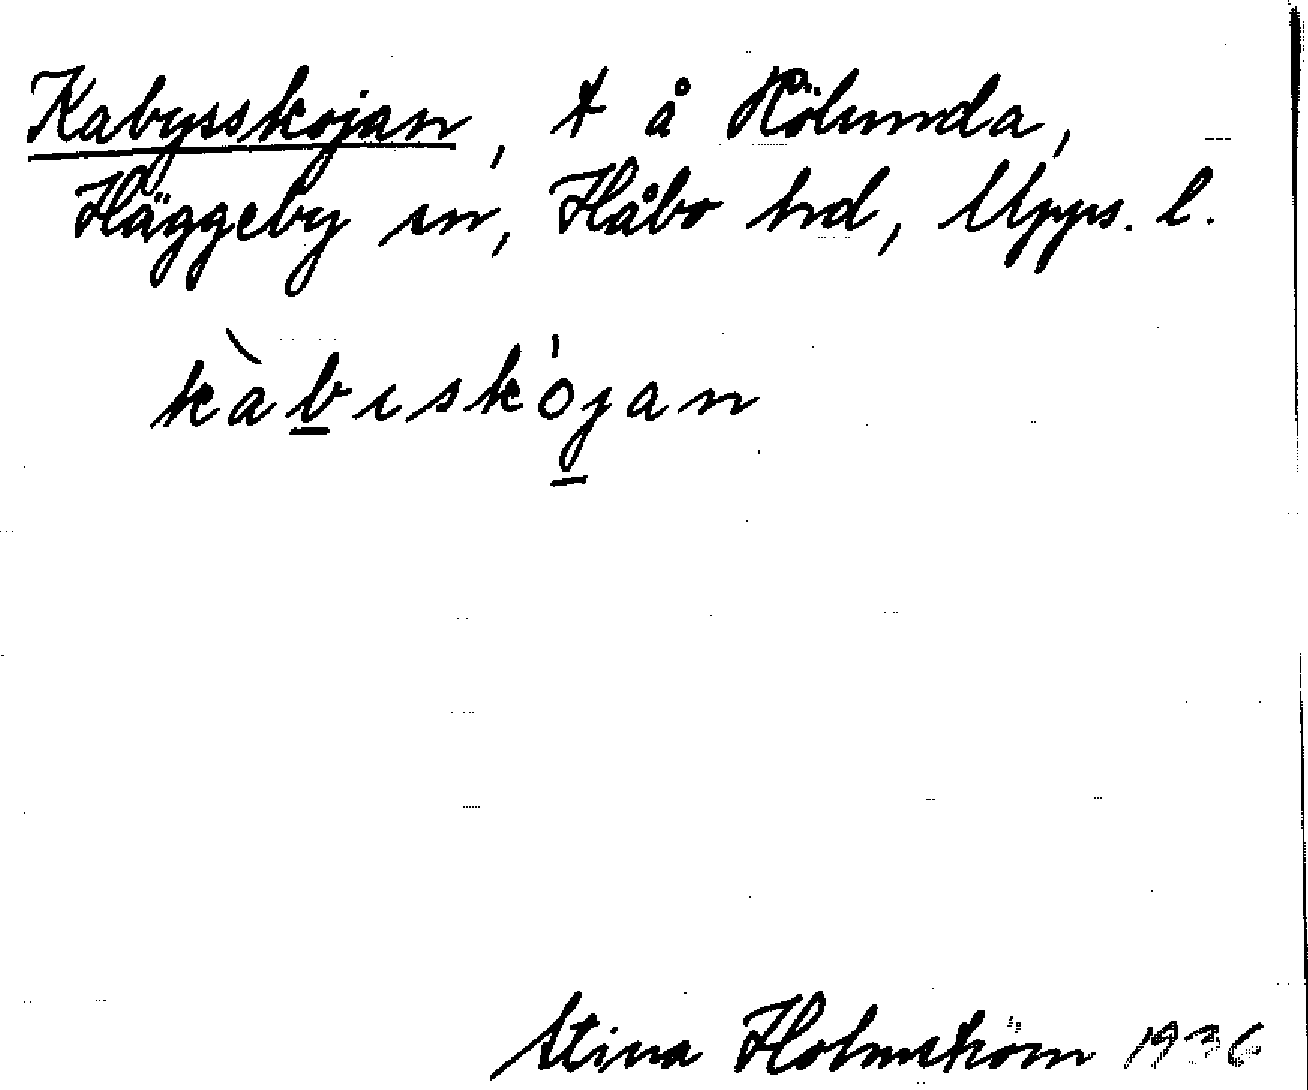 Kabysskojan, t å Hölunda,
Häggeby sn, Håbo hd, Upps. l.
kàbıskójan
Stina Holmström 1936